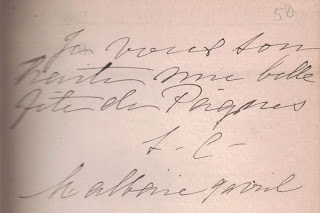 50
Je vous sou
haite une belle
fête de Pâques
L - C -
Malbaie 9 avril